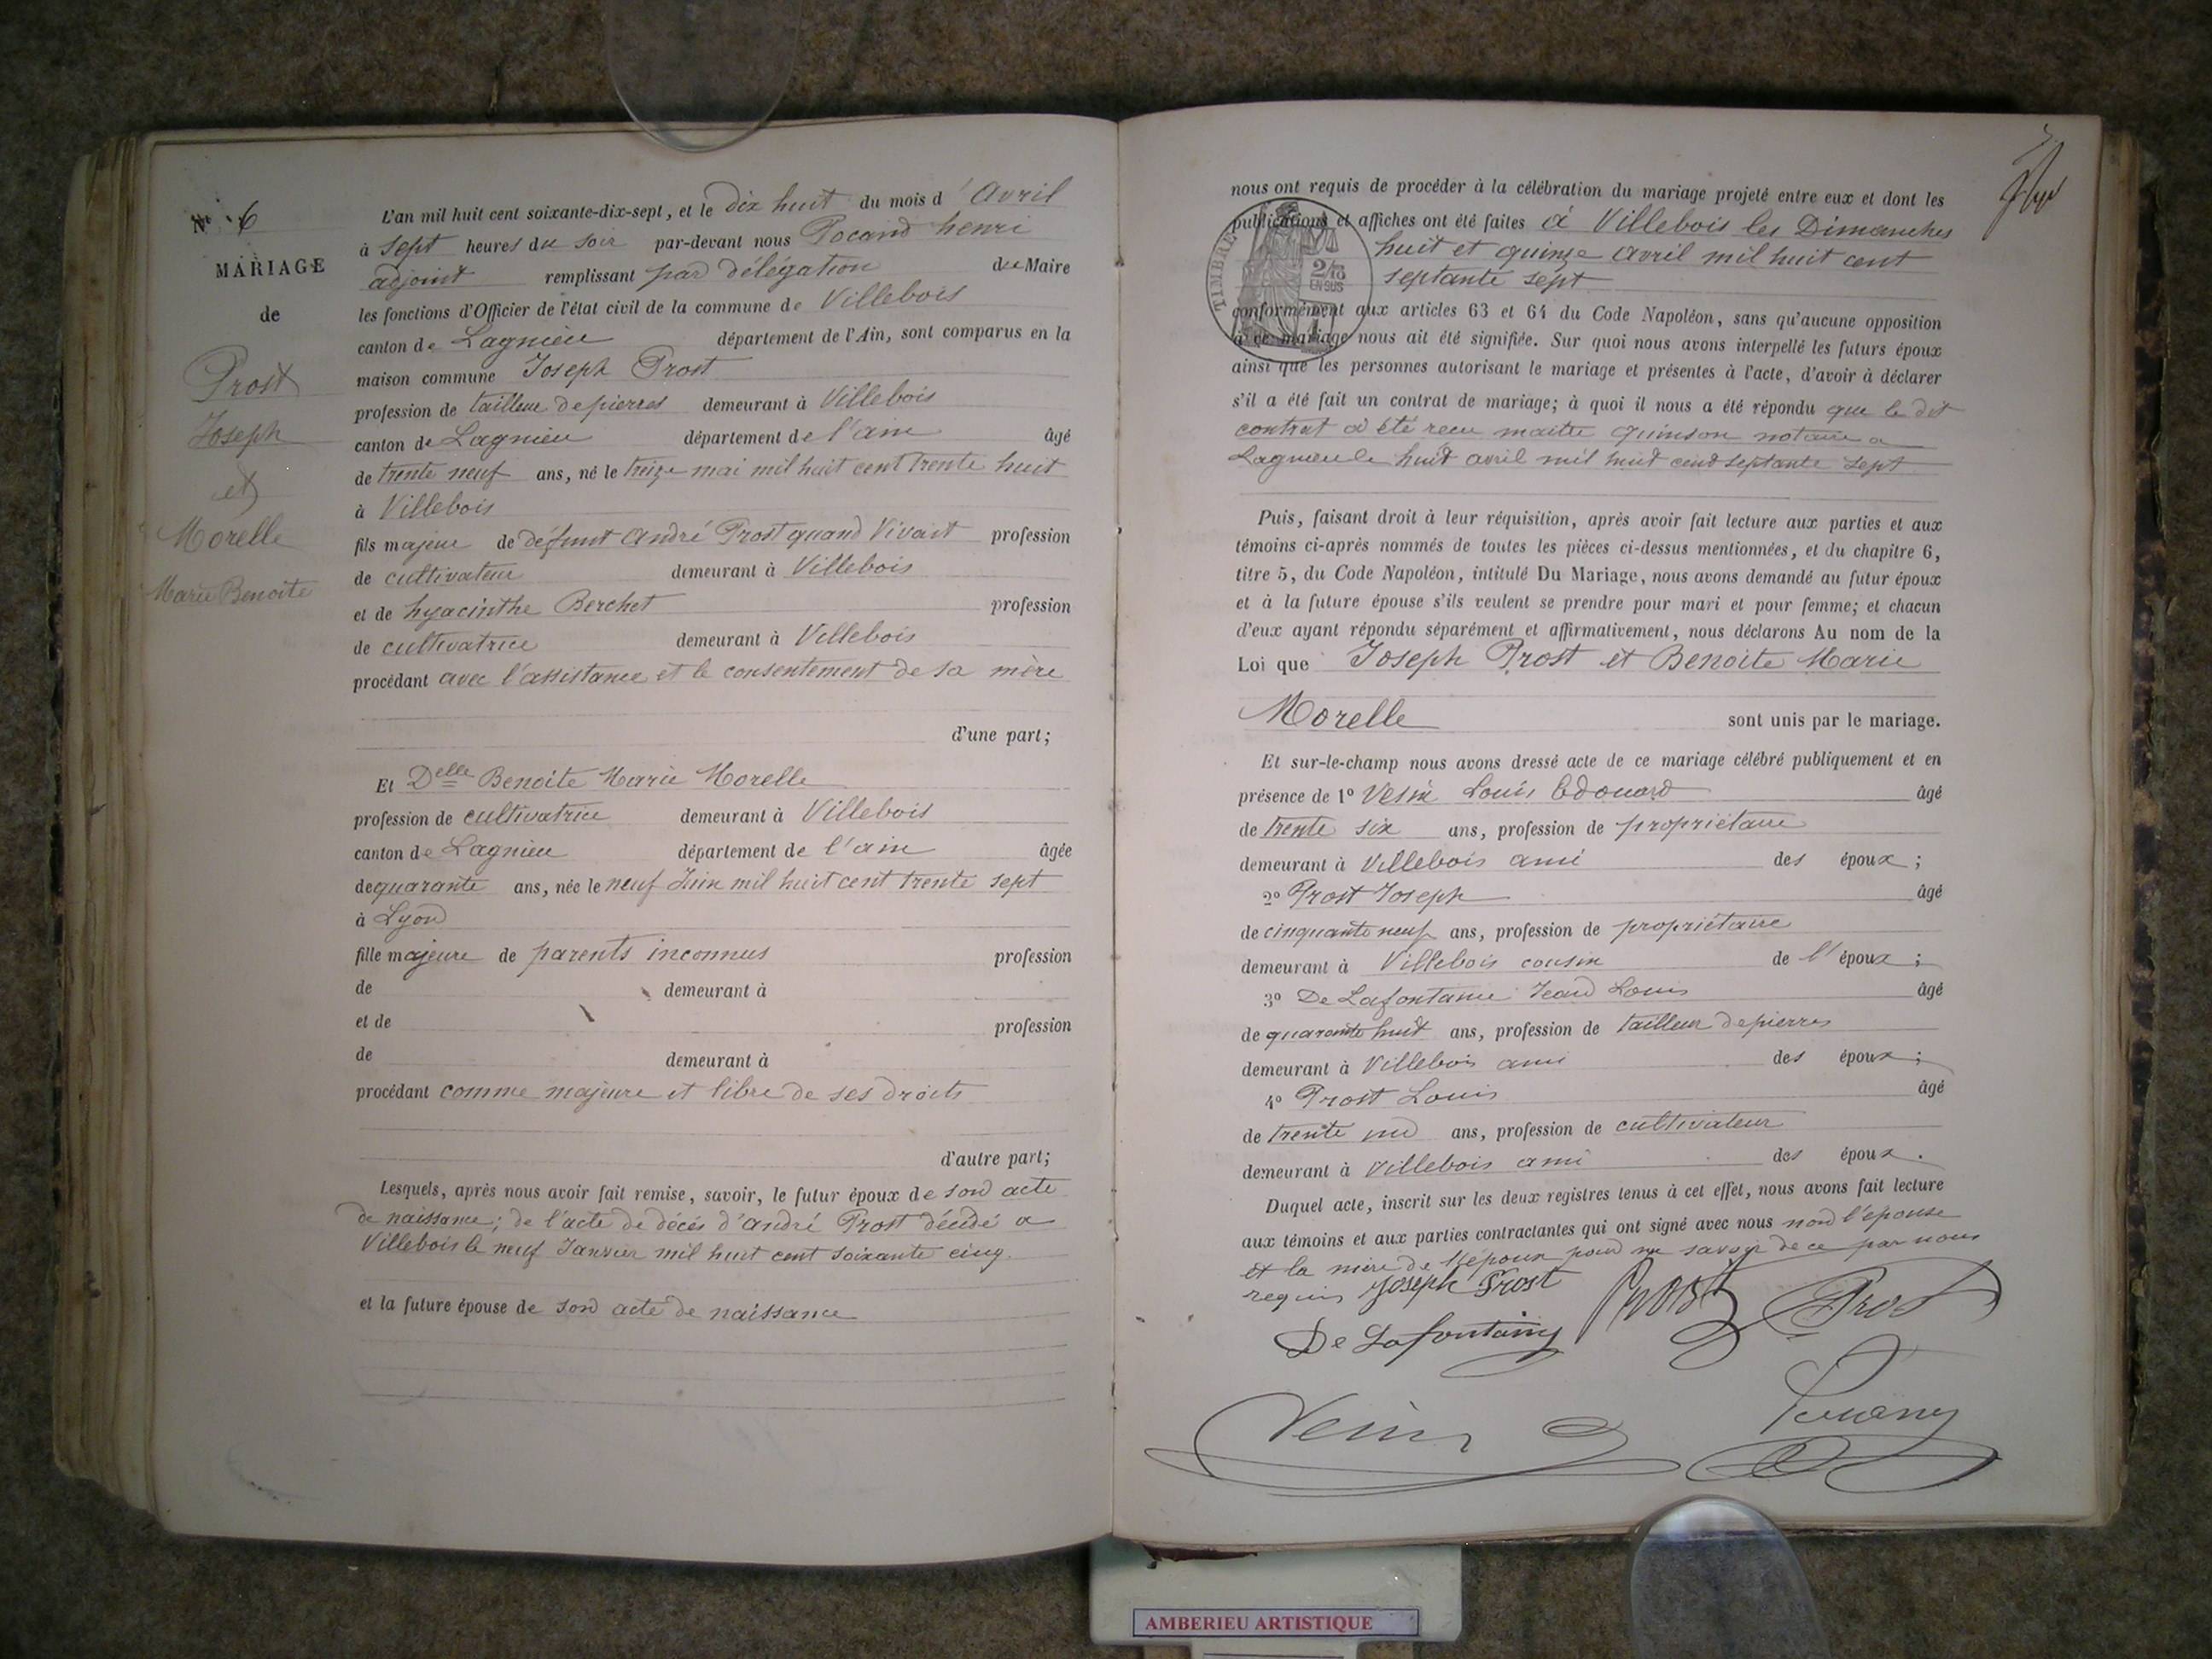 N° 6
MARIAGE
de
Prost
Joseph
et
Morelle
Marie Benoite
L'an mil huit cent soixante-dix-sept, et le dix huit du mois d'Avril
à sept heures du soir par-devant nous Pocard henri
adjoint remplissant par délégation du Maire
les fonctions d'Officier de l'état civil de la commune de Villebois
canton de Lagnieu département de l'Ain, sont comparus en la
maison commune Joseph Prost
profession de tailleur de pierres demeurant à Villebois
canton de Lagnieu département de l'ain âgé
de trente neuf ans, né le treize mai mil huit cent trente huit
à Villebois
fils majeur de défunt André Prost quand Vivait profession
de cultivateur demeurant à Villebois
et de hyacinthe Berchet profession
de cultivatrice demeurant à Villebois
procédant avec l'assistance et le consentement de sa mère
d'une part;
Et Delle Benoite Marie Morelle
profession de cultivatrice demeurant à Villebois
canton de Lagnieu département de l'ain âgée
de quarante ans, née le neuf Juin mil huit cent trente sept
à Lyon
fille majeure de parents inconnus profession
de demeurant à
et de profession
de demeurant à
procédant comme majeure et libre de ses droits
d'autre part;
Lesquels, après nous avoir fait remise, savoir, le futur époux de son acte
de naissance; de l'acte de décès d'andré Prost décédé a
Villebois le neuf Janvier mil huit cent soixante cinq.
et la future épouse de son acte de naissance
nous ont requis de procéder à la célébration du mariage projeté entre eux et dont les
publications et affiches ont été faites à Villebois les Dimanches
huit et quinze avril mil huit cent
septante sept
TIMBRE
2/10
EN SUS
conformément aux articles 63 et 64 du Code Napoléon, sans qu'aucune opposition
à ce mariage nous ait été signifiée. Sur quoi nous avons interpellé les futurs époux
ainsi que les personnes autorisant le mariage et présentes à l'acte, d'avoir à déclarer
s'il a été fait un contrat de mariage; à quoi il nous a été répondu que le dit
contrat a été recu maitre quinson notaire a
Lagnieu le huit avril mil huit cent septante sept
Puis, faisant droit à leur réquisition, après avoir fait lecture aux parties et aux
témoins ci-après nommés de toutes les pièces ci-dessus mentionnées, et du chapitre 6,
titre 5, du Code Napoléon, intitulé Du Mariage, nous avons demandé au futur époux
et à la future épouse s'ils veulent se prendre pour mari et pour femme; et chacun
d'eux ayant répondu séparément et affirmativement, nous déclarons Au nom de la
Loi que Joseph Prost et Benoite Marie
Morelle sont unis par le mariage.
Et sur-le-champ nous avons dressé acte de ce mariage célébré publiquement et en
présence de 1° Vesin Louis Edouard âgé
de trente six ans, profession de propriétaire
demeurant à Villebois ami des époux;
2° Prost Joseph âgé
de cinquante neuf ans, profession de propriétaire
demeurant à Villebois cousin de l'époux;
3° De Lafontaine Jean Louis âgé
de quarante huit ans, profession de tailleur de pierres
demeurant à Villebois ami des époux;
4° Prost Louis âgé
de trente un ans, profession de cultivateur
demeurant à Villebois ami des époux.
Duquel acte, inscrit sur les deux registres tenus à cet effet, nous avons fait lecture
aux témoins et aux parties contractantes qui ont signé avec nous non l'épouse
et la mère de l'époux pour ne savoir de ce par nous
requis Joseph Prost Prost Prost
De Lafontaine
Vesin
AMBERIEU ARTISTIQUE